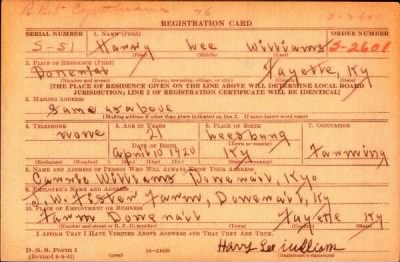 REGISTRATION CARD
SERIAL NUMBER 1. NAME (Print) ORDER NUMBER
S-51 Harry Lee Williams S-2601
(First) (Middle) (Last)
2. PLACE OF RESIDENCE (Print)
Donerail Fayette, Ky
(Number and street) (Town, township, village, or city) (County) (State)
[THE PLACE OF RESIDENCE GIVEN ON THE LINE ABOVE WILL DETERMINE LOCAL BOARD
JURISDICTION; LINE 2 OF REGISTRATION CERTIFICATE WILL BE IDENTICAL]
3. MAILING ADDRESS
Same as above
[Mailing address if other than place indicated on line 2. If same insert word same]
4. TELEPHONE 5. AGE IN YEARS 6. PLACE OF BIRTH 7. OCCUPATION
none 21 Leesburg
DATE OF BIRTH
April 10 1920 Ky Farming
(Exchange) (Number) (Mo.) (Day) (Yr.) (State or country)
8. NAME AND ADDRESS OF PERSON WHO WILL ALWAYS KNOW YOUR ADDRESS
Carrie Williams Donerail, Ky.
9. EMPLOYER'S NAME AND ADDRESS
Farm, Donerail, Ky
10. PLACE OF EMPLOYMENT OR BUSINESS
Farm Donerail Fayette Ky
(Number and street or R. F. D. number) (Town) (County) (State)
I AFFIRM THAT I HAVE VERIFIED ABOVE ANSWERS AND THAT THEY ARE TRUE.
D. S. S. Form 1
Harry Lee William